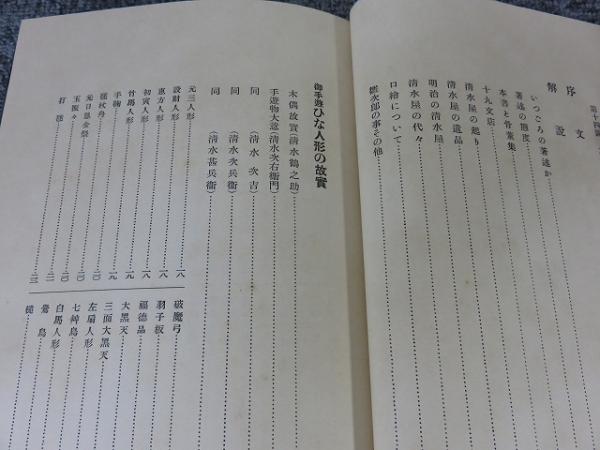 序文
解説
いつごろの著述か
著述の態度
本書と骨董集
十九文店
清水屋の起り
清水屋の遺品
明治の清水屋
清水屋の代々
口繪について
鑑次郎の事その他
御手遊ひな人形の故實
木偶故實(清水鶴之助)
手遊物大意(清水次右衛門)
同(清水次吉)
同(清水次兵衞)
同(清水甚兵衞)
元三人形
設財人形
恵方人形 一八
初寅人形 一八
竹馬人形 一九
手鞠 一九
毬杖舟 二〇
元日恩金祭 二〇
玉振々 二〇
打毬
破魔弓 一八
羽子板
福德品
大黑天
三面大黑天
左扇人形
七艸鳥
白馬人形
鶯鳥
槌